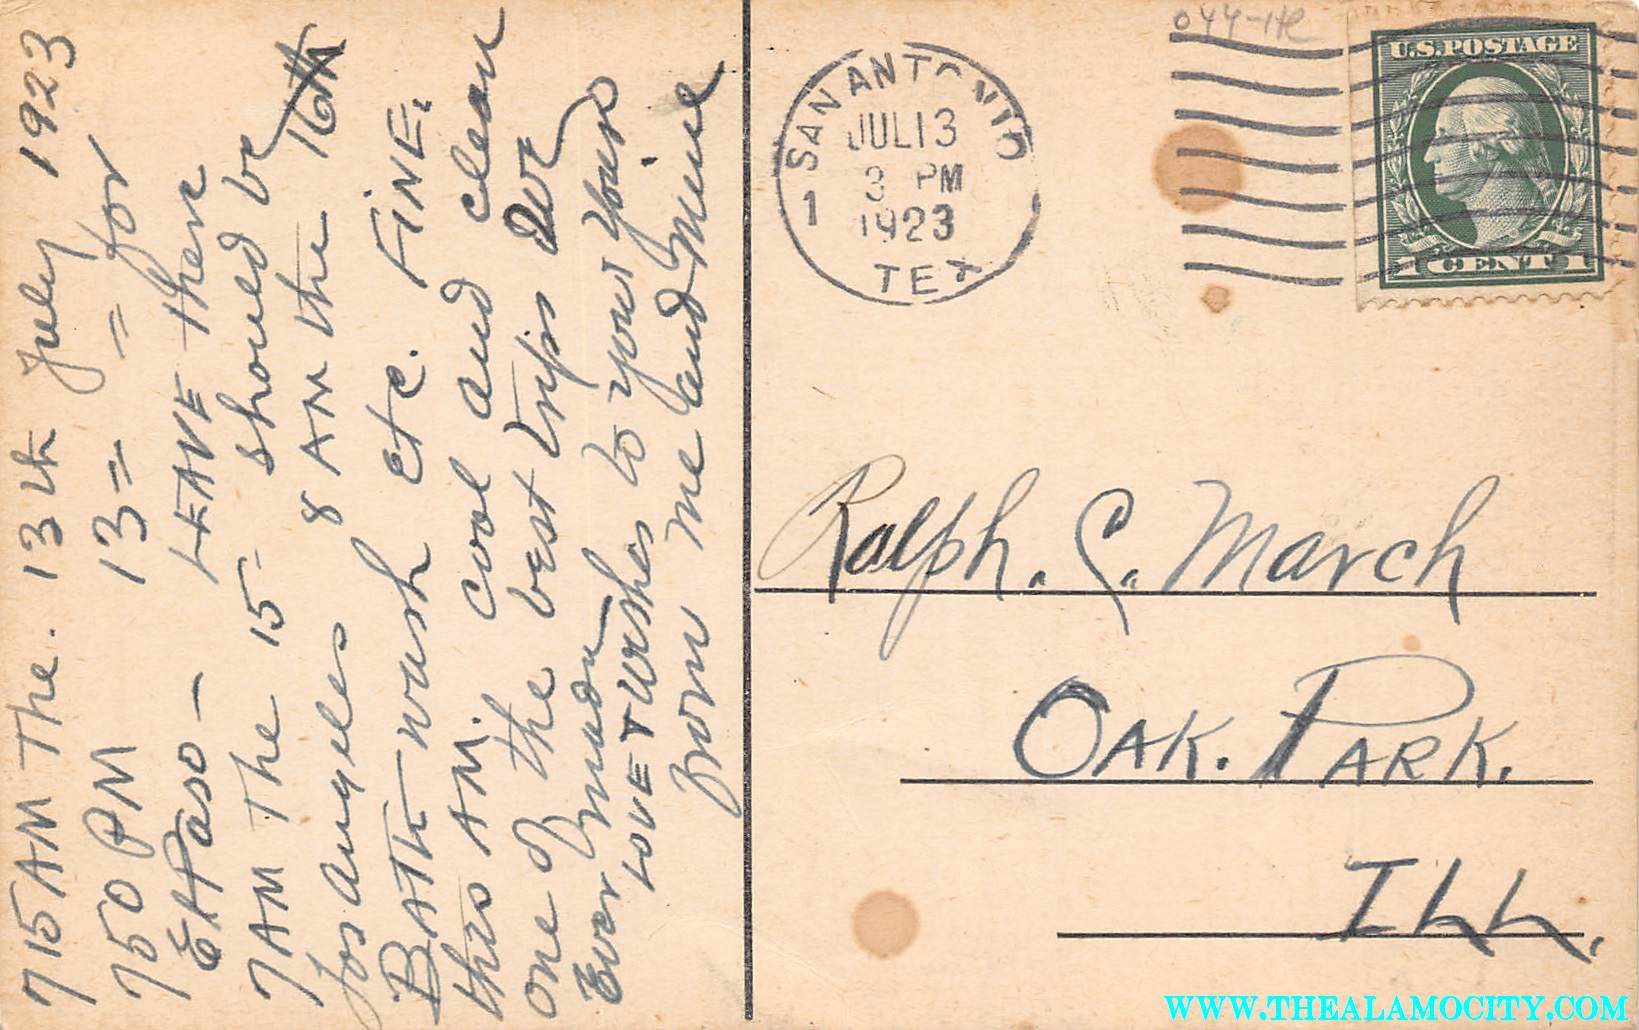 715 AM The. 13th July 1923
750 PM 13 = = for
El Paso - LEAVE there
7 AM The 15 - should be
Los Angeles 8 AM the 16th
BATH wash etc. FINE.
this AM. cool and clean
one of the best trips We
Ever made
LOVE + Wishes to your yours
From me and mine
044-HR
SAN ANTONIO
JUL 13
3 PM
1923
1
TEX
U.S. POSTAGE
1 CENT 1
Ralph. C. March
OAK. PARK.
ILL.
WWW.THEALAMOCITY.COM